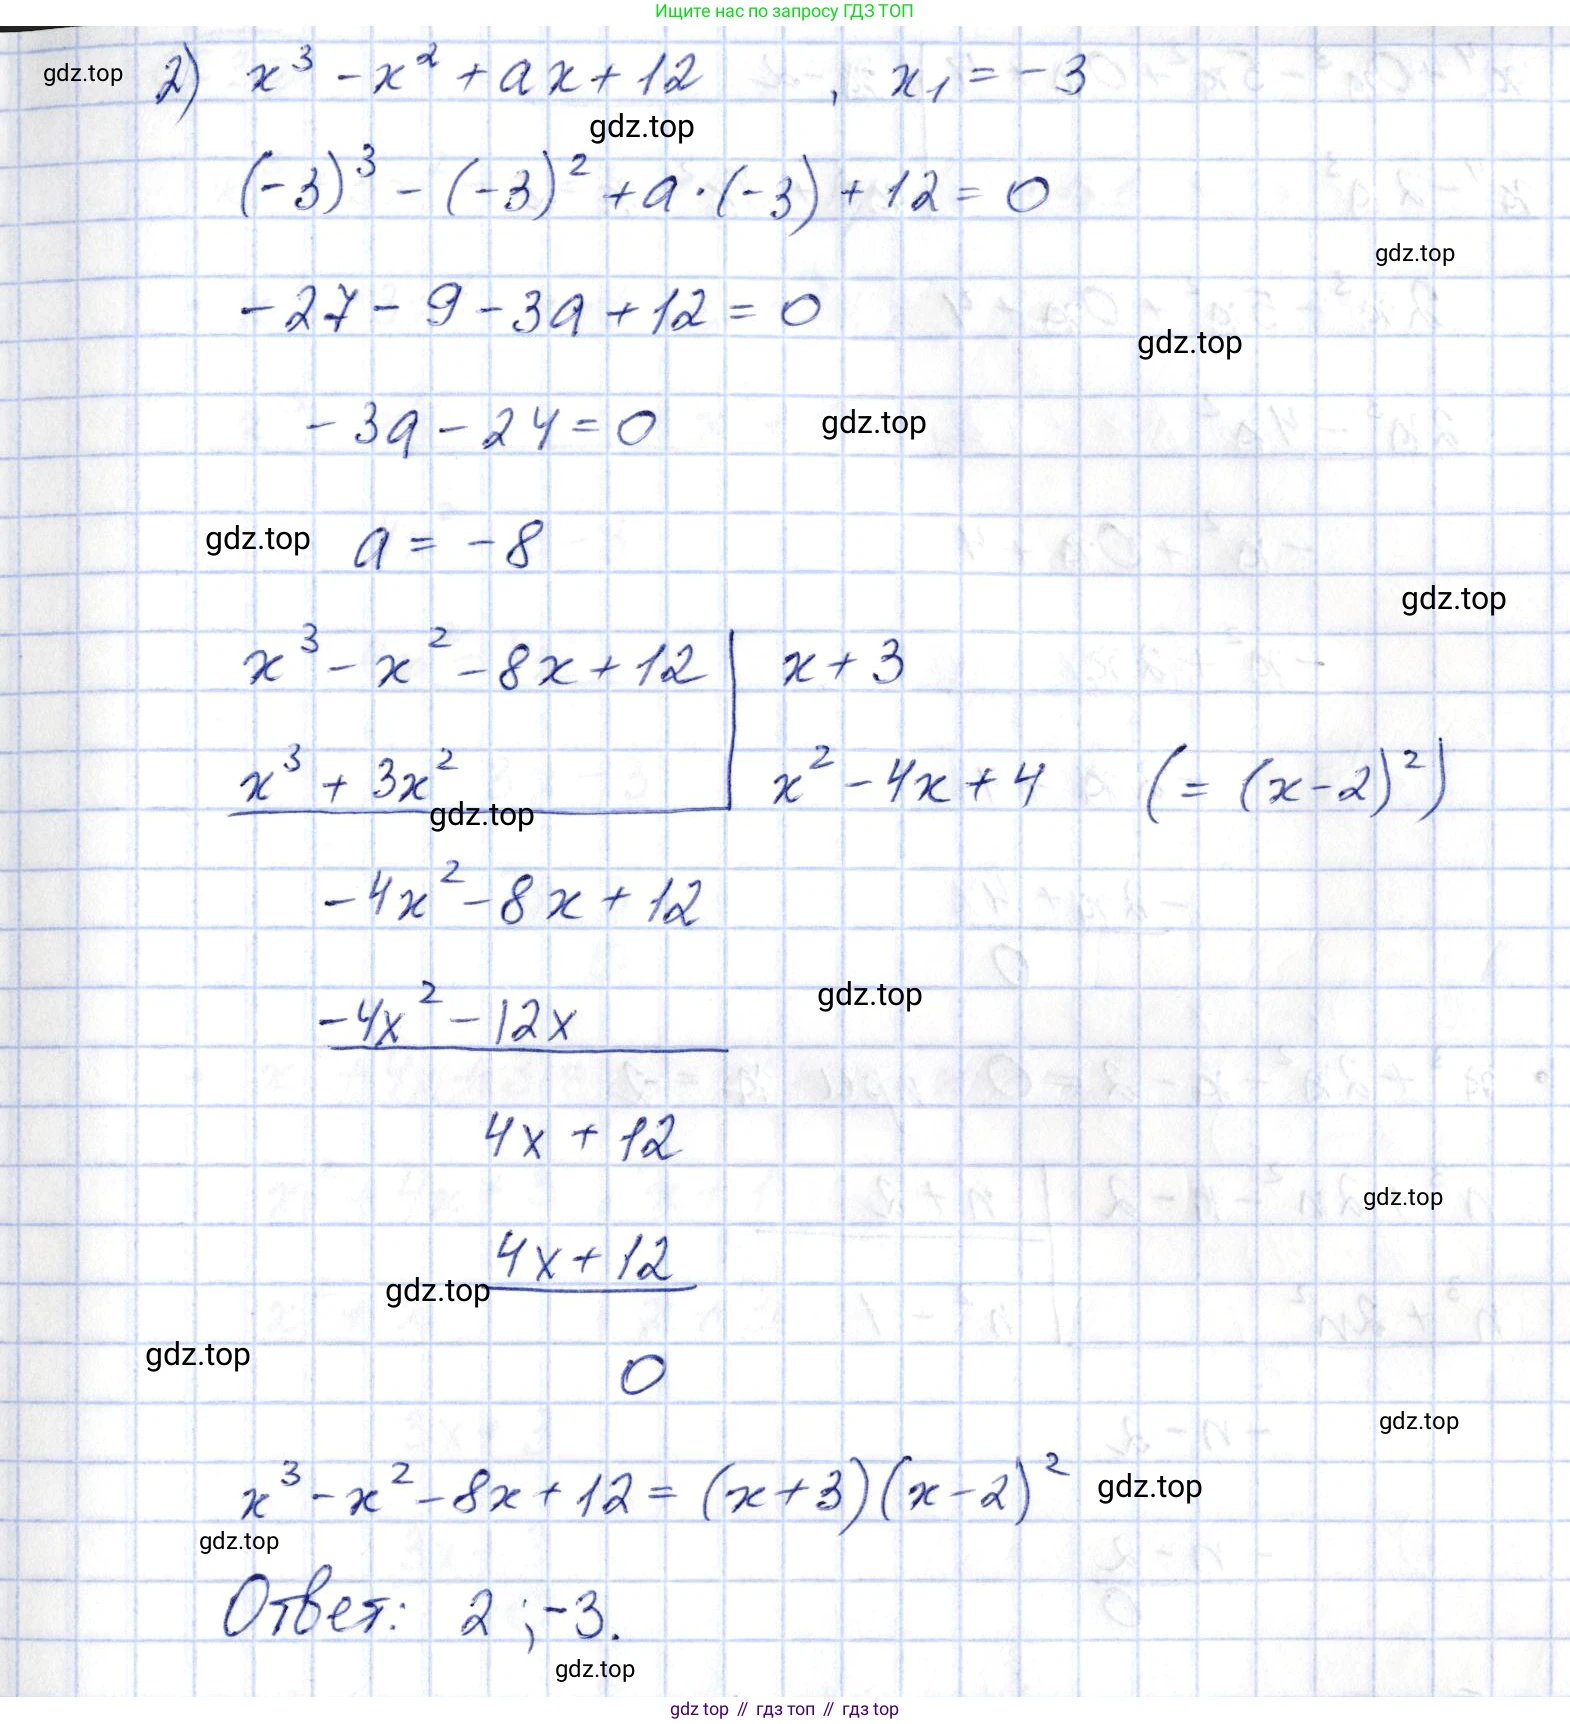 Ищите нас по запросу ГДЗ ТОП
gdz.top 2) x³ - x² + ax + 12 , x₁ = -3
gdz.top
(-3)³ - (-3)² + a·(-3) + 12 = 0
gdz.top
-27 - 9 - 3a + 12 = 0
gdz.top
-3a - 24 = 0 gdz.top
gdz.top a = -8
gdz.top
x³ - x² - 8x + 12 | x + 3
x³ + 3x² | x² - 4x + 4 (= (x-2)²)
gdz.top
-4x² - 8x + 12
gdz.top
-4x² - 12x
4x + 12
gdz.top
4x + 12
gdz.top
gdz.top
0
gdz.top
x³ - x² - 8x + 12 = (x+3)(x-2)² gdz.top
gdz.top
Ответ: 2 ; -3.
gdz.top
gdz top // гдз топ // gdz top